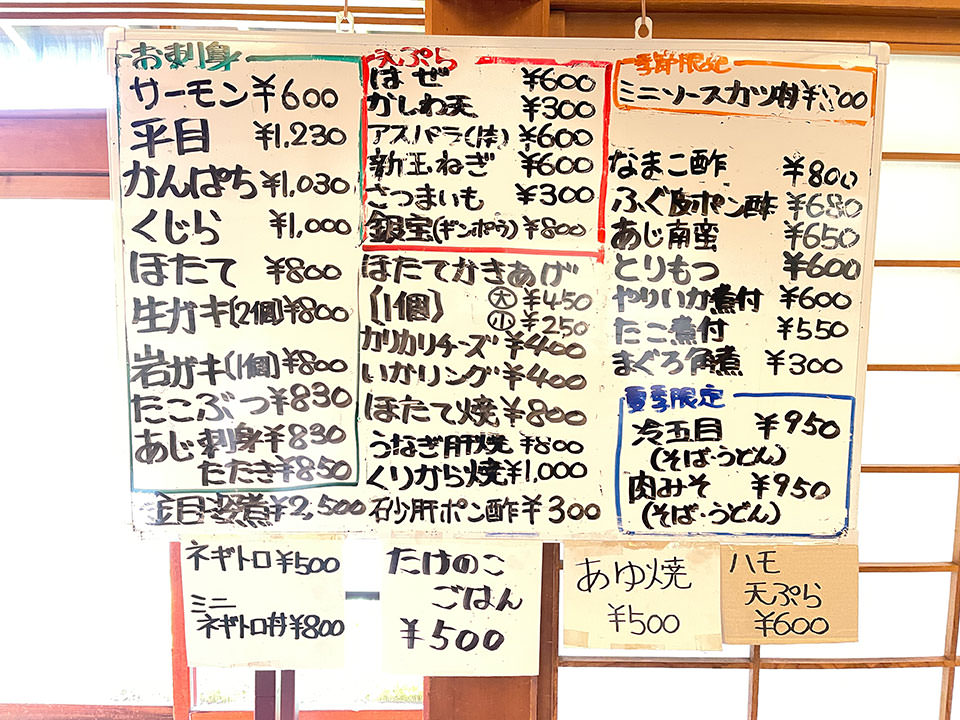 お刺身
サーモン ¥600
平目 ¥1,230
かんぱち ¥1,030
くじら ¥1,000
ほたて ¥800
生ガキ(2個) ¥800
岩ガキ(1個) ¥800
たこぶつ ¥830
あじ刺身 ¥830
たたき ¥850
金目姿煮 ¥2,500
天ぷら
はぜ ¥600
かしわ天 ¥300
アスパラ(1本) ¥600
新玉ねぎ ¥600
さつまいも ¥300
銀宝(ギンポウ) ¥800
ほたてかきあげ
(1個) 大 ¥450
小 ¥250
カリカリチーズ ¥400
いかリング ¥400
ほたて焼 ¥800
うなぎ肝焼 ¥800
くりから焼 ¥1,000
砂肝ポン酢 ¥300
季節限定
ミニソースカツ丼
なまこ酢 ¥800
ふぐ皮ポン酢 ¥680
あじ南蛮 ¥650
とりもつ ¥600
やりいか煮付 ¥600
たこ煮付 ¥550
まぐろ角煮 ¥300
夏季限定
冷五目 ¥950
(そば・うどん)
肉みそ ¥950
(そば・うどん)
ネギトロ ¥500
ミニ
ネギトロ丼 ¥800
たけのこ
ごはん
¥500
あゆ焼
¥500
ハモ
天ぷら
¥600